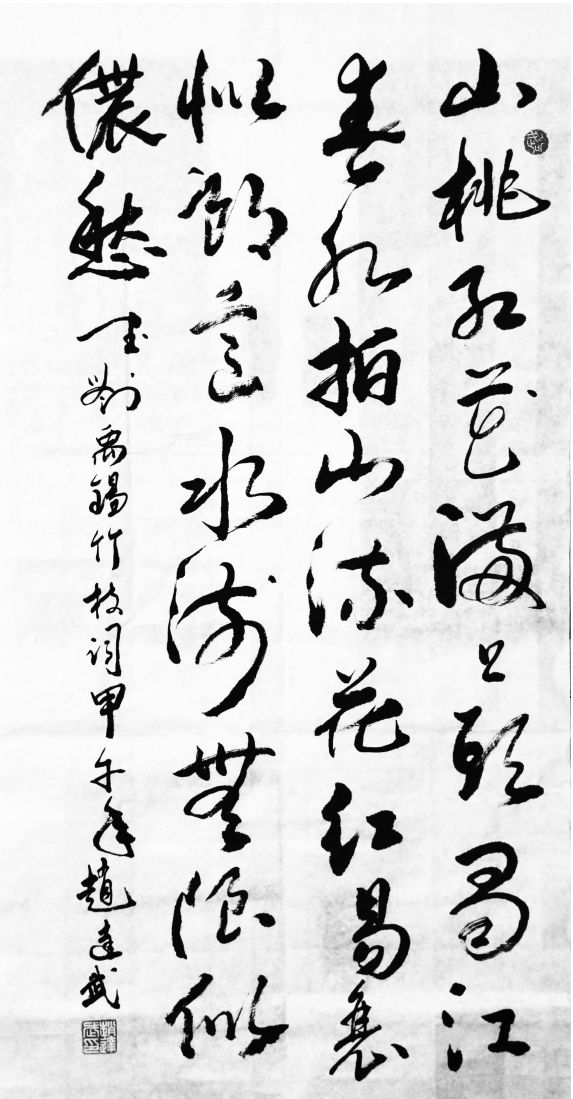 山桃红花满上头蜀江
春水拍山流花红易衰
似郎意水流無限似
儂愁 刘禹锡竹枝词甲午年趙達武